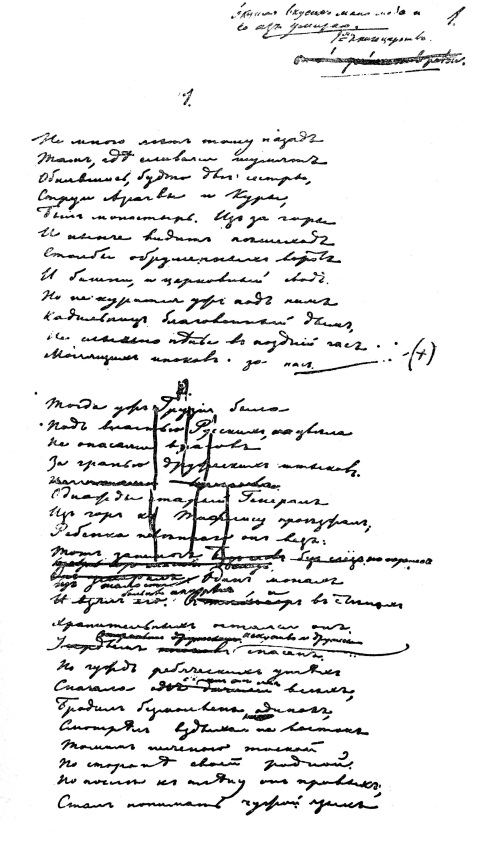 Вкушая вкусих мало меда и
се аз умираю.
1-я Книга царств.
1.
1.
Не много лет тому назадъ
Тамъ, гдѣ сливаяся шумятъ
Обнявшись, будто двѣ сестры,
Струи Арагвы и Куры,
Былъ монастырь. Изъ за горы
И нынче видитъ пѣшеходъ
Столбы обрушенныхъ воротъ
И башни, и церковный сводъ.
Но не курится ужъ подъ нимъ
Кадильницъ благовонный дымъ,
Не слышно пѣнье въ поздній часъ
Молящихъ иноковъ за насъ. (+)
Тогда ужъ Грузія была
Подъ властью Русскихъ, и цвѣла
Не опасаяся враговъ
За гранью дружескихъ штыковъ.
Однажды старый Генералъ
Изъ горъ къ Тифлису проѣзжалъ,
Ребенка плѣннаго онъ везъ:
Тотъ занемогъ
одинъ монахъ
И взялъ его. въ стѣнахъ
Хранительныхъ остался онъ.
спасенъ.
Но чуждъ ребяческихъ утѣхъ
Сначала всѣхъ,
Бродилъ безмолвенъ, одинокъ,
Смотрѣлъ вздыхая на востокъ
Томимъ неясною тоской
По сторонѣ своей родной.
Но послѣ къ плѣну онъ привыкъ,
Сталъ понимать чужой языкъ